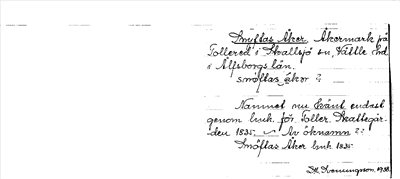 Smöftas Åker. Åkermark på
Tollered i Skallsjö sn, Vättle hd
i Älfsborgs län.
smöftas åker ?
Namnet nu känt endast
genom buk. för Toller. Skattegår-
den 1835. Av öknamn ?:
Smöftas Åker buk 1835
Henningsson, 1938.